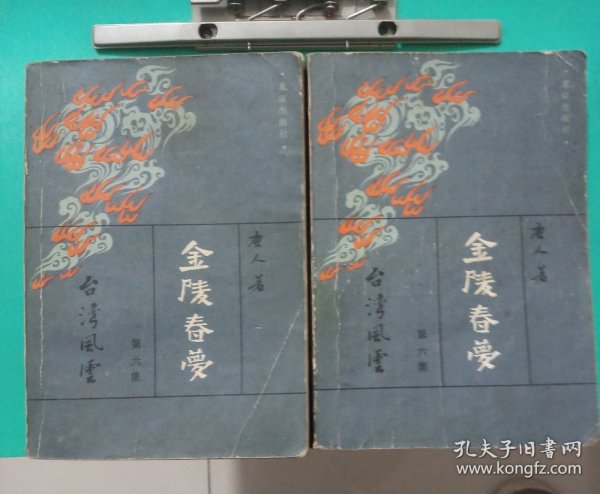 北京出版社
唐人著
金陵春夢
第六集
台湾風雲
北京出版社
唐人著
金陵春夢
第六集
台湾風雲
孔夫子旧书网
www.kongfz.com